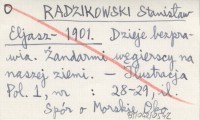 RADZIKOWSKI Stanisław
Eljasz - 1901. Dzieje bezpra-
wia. Żandarmi węgierscy na
naszej ziemi. - Ilustracja
Pol. 1, nr : 28-29, il.
Spór o Morskie Oko